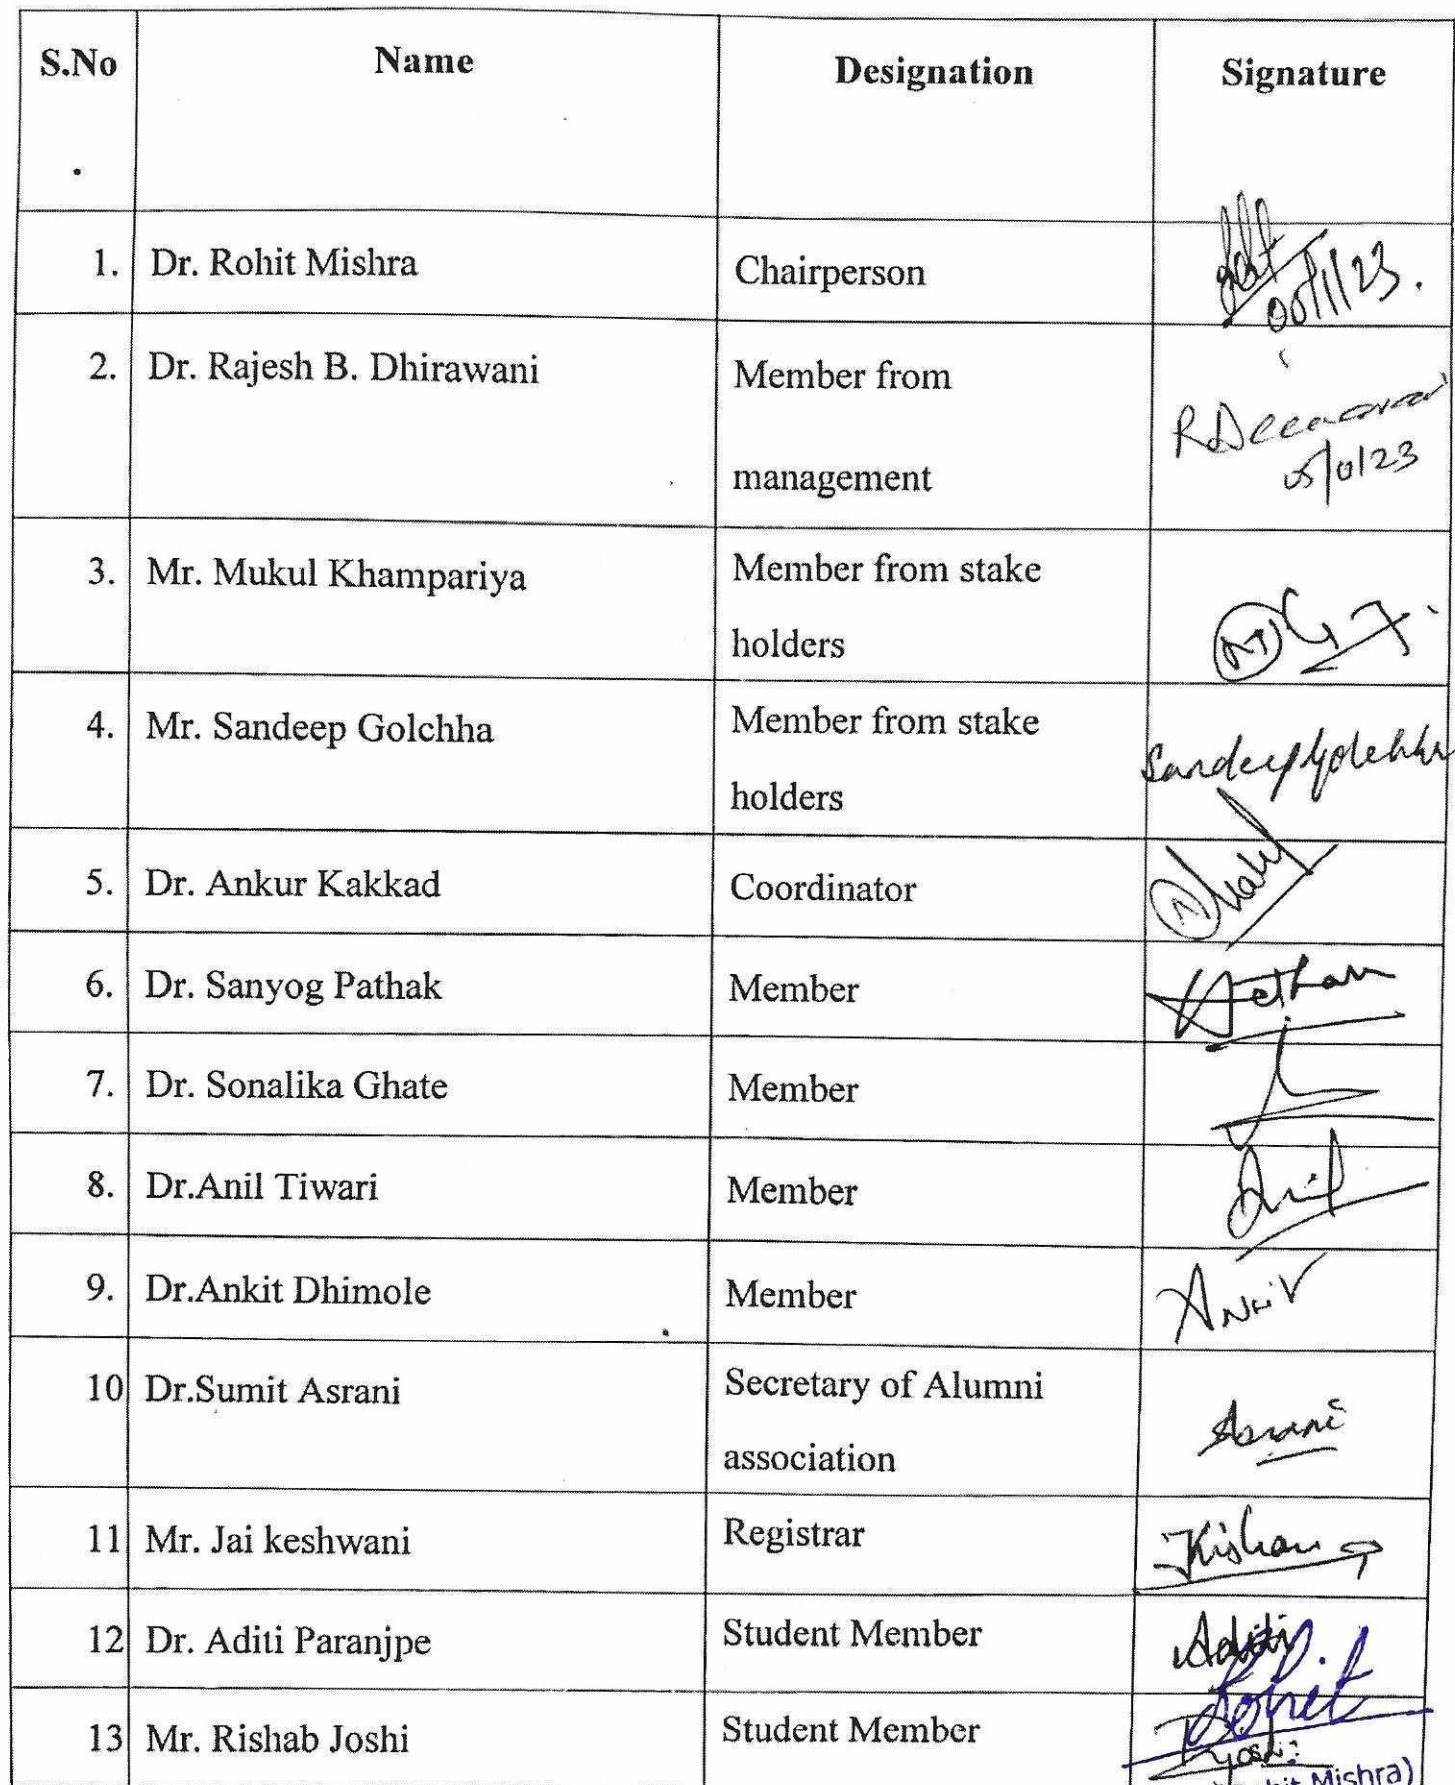 S.No
.
Name
Designation
Signature
1. Dr. Rohit Mishra Chairperson
05/1/23.
2. Dr. Rajesh B. Dhirawani Member from
management
05/01/23
3. Mr. Mukul Khampariya Member from stake
holders
4. Mr. Sandeep Golchha Member from stake
holders
Sandeep Golchha
5. Dr. Ankur Kakkad Coordinator
6. Dr. Sanyog Pathak Member
7. Dr. Sonalika Ghate Member
8. Dr.Anil Tiwari Member Anil
9. Dr.Ankit Dhimole Member Ankit
10 Dr.Sumit Asrani Secretary of Alumni
association
Asrani
11 Mr. Jai keshwani Registrar
12 Dr. Aditi Paranjpe Student Member Aditi
Rohit
13 Mr. Rishab Joshi Student Member RJoshi
Mishra)